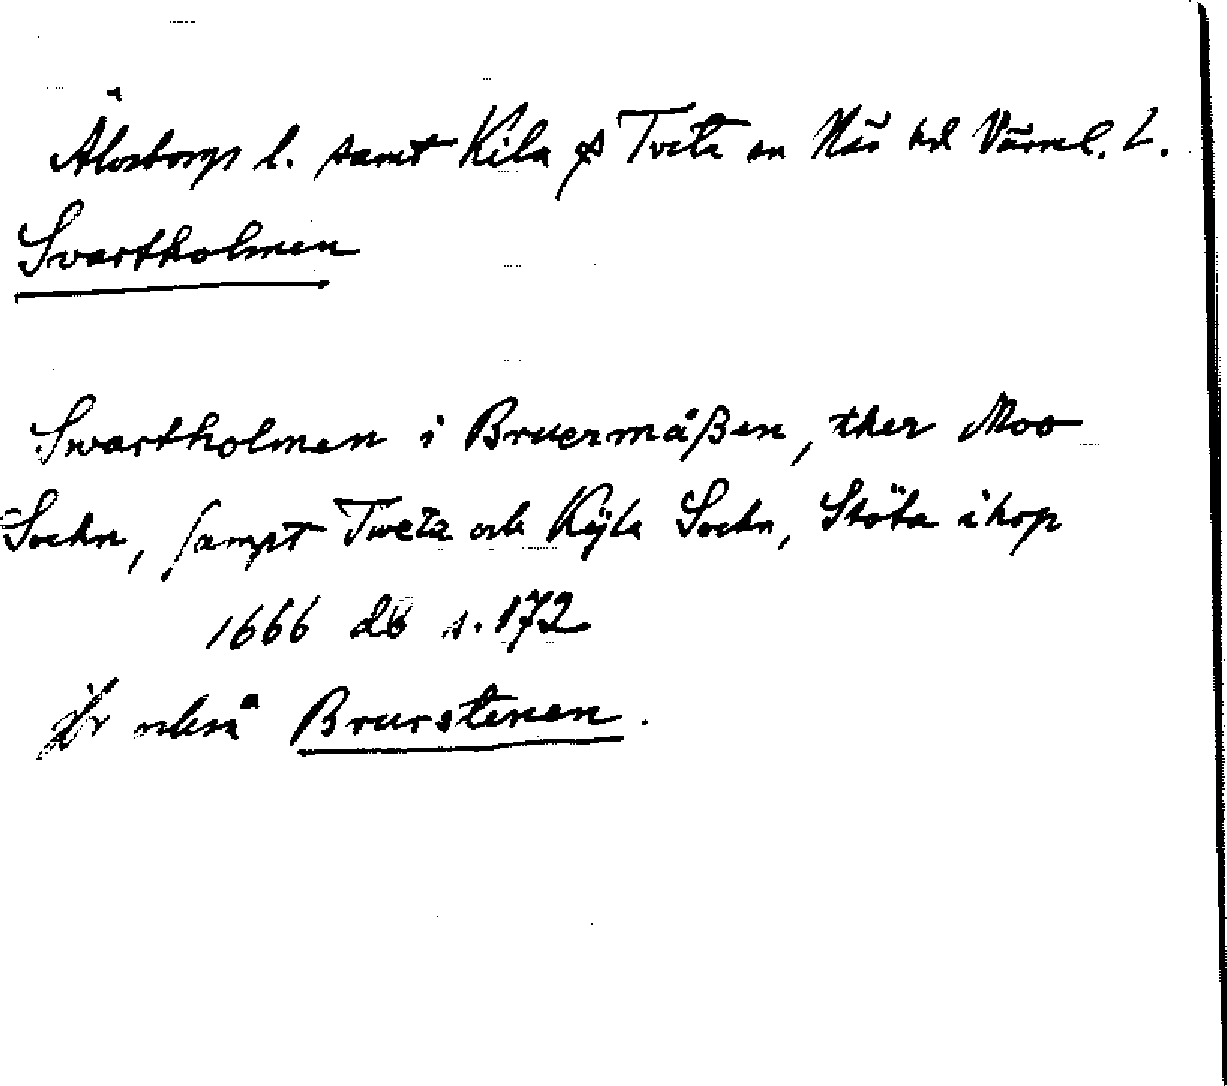 Älvsborgs l. samt Kila o Tveta sn Näs hd Värml. L.
Svartholmen
Swartholmen i Bruermåßen, ther Moo
Sochn, sampt Tweta och Kÿla Sochn, Stöta ihop
1666 db s. 172
Jfr också Brurstenen.